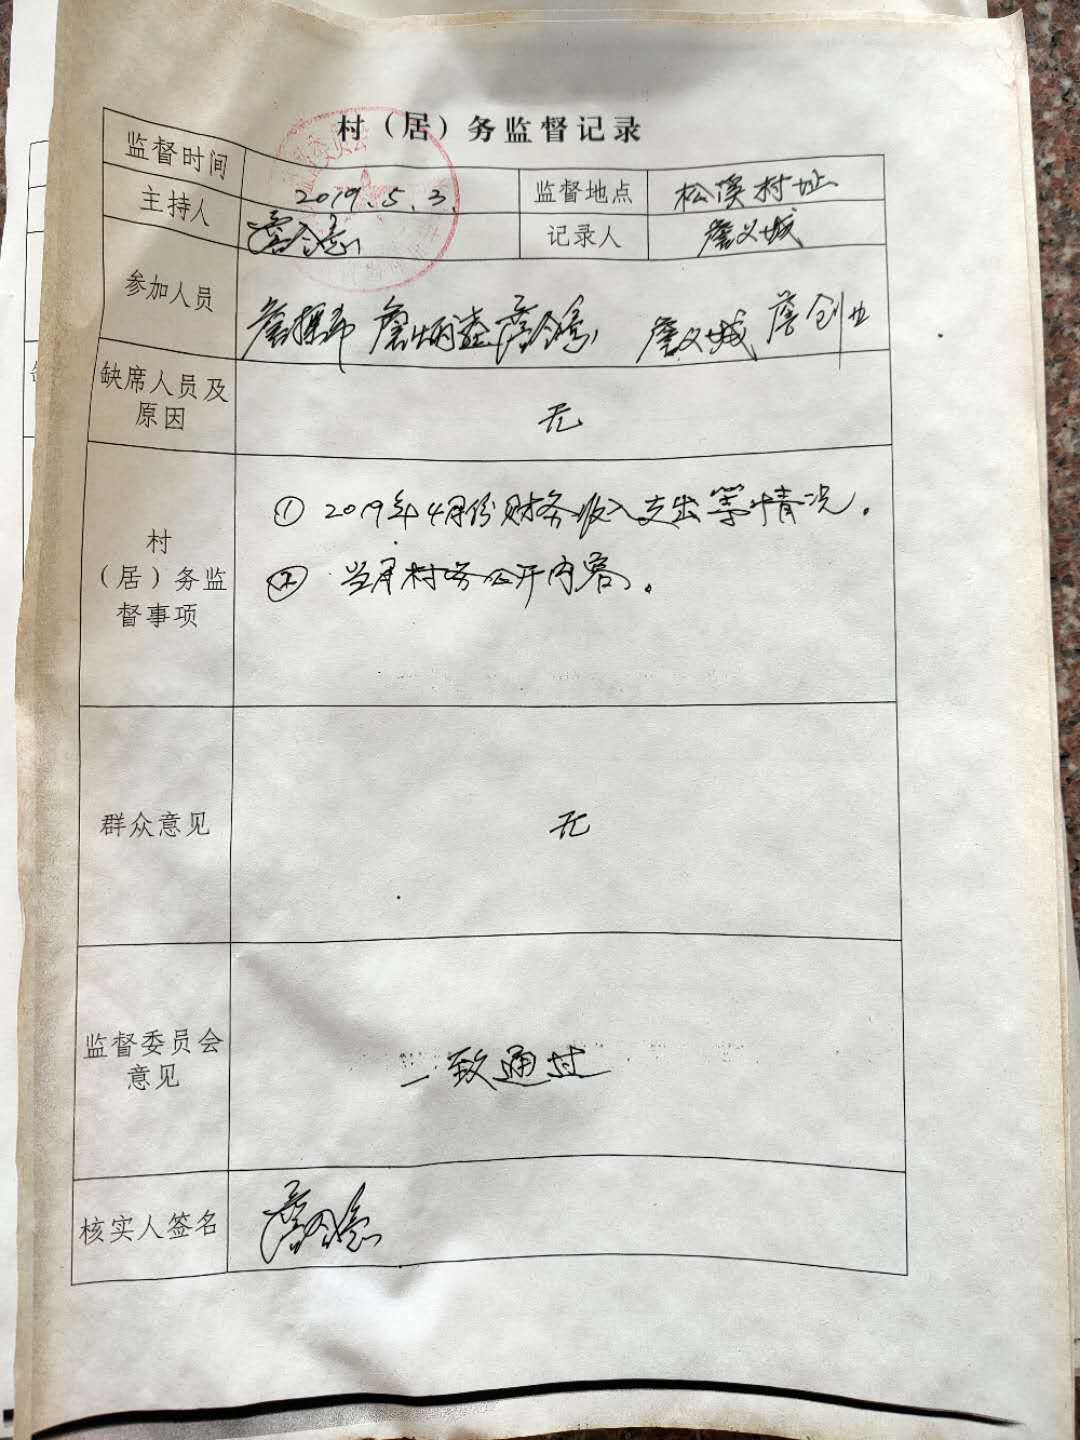 村（居）务监督记录
监督时间 2019.5.3 监督地点 松溪村址
主持人 詹 记录人 詹义城
参加人员 詹 詹炳 詹 詹义城 詹创业
缺席人员及
原因
无
村
（居）务监
督事项
① 2019年4月份财务收入支出等情况。
② 当月村务公开内容。
群众意见 无
监督委员会
意见
一致通过
核实人签名 詹